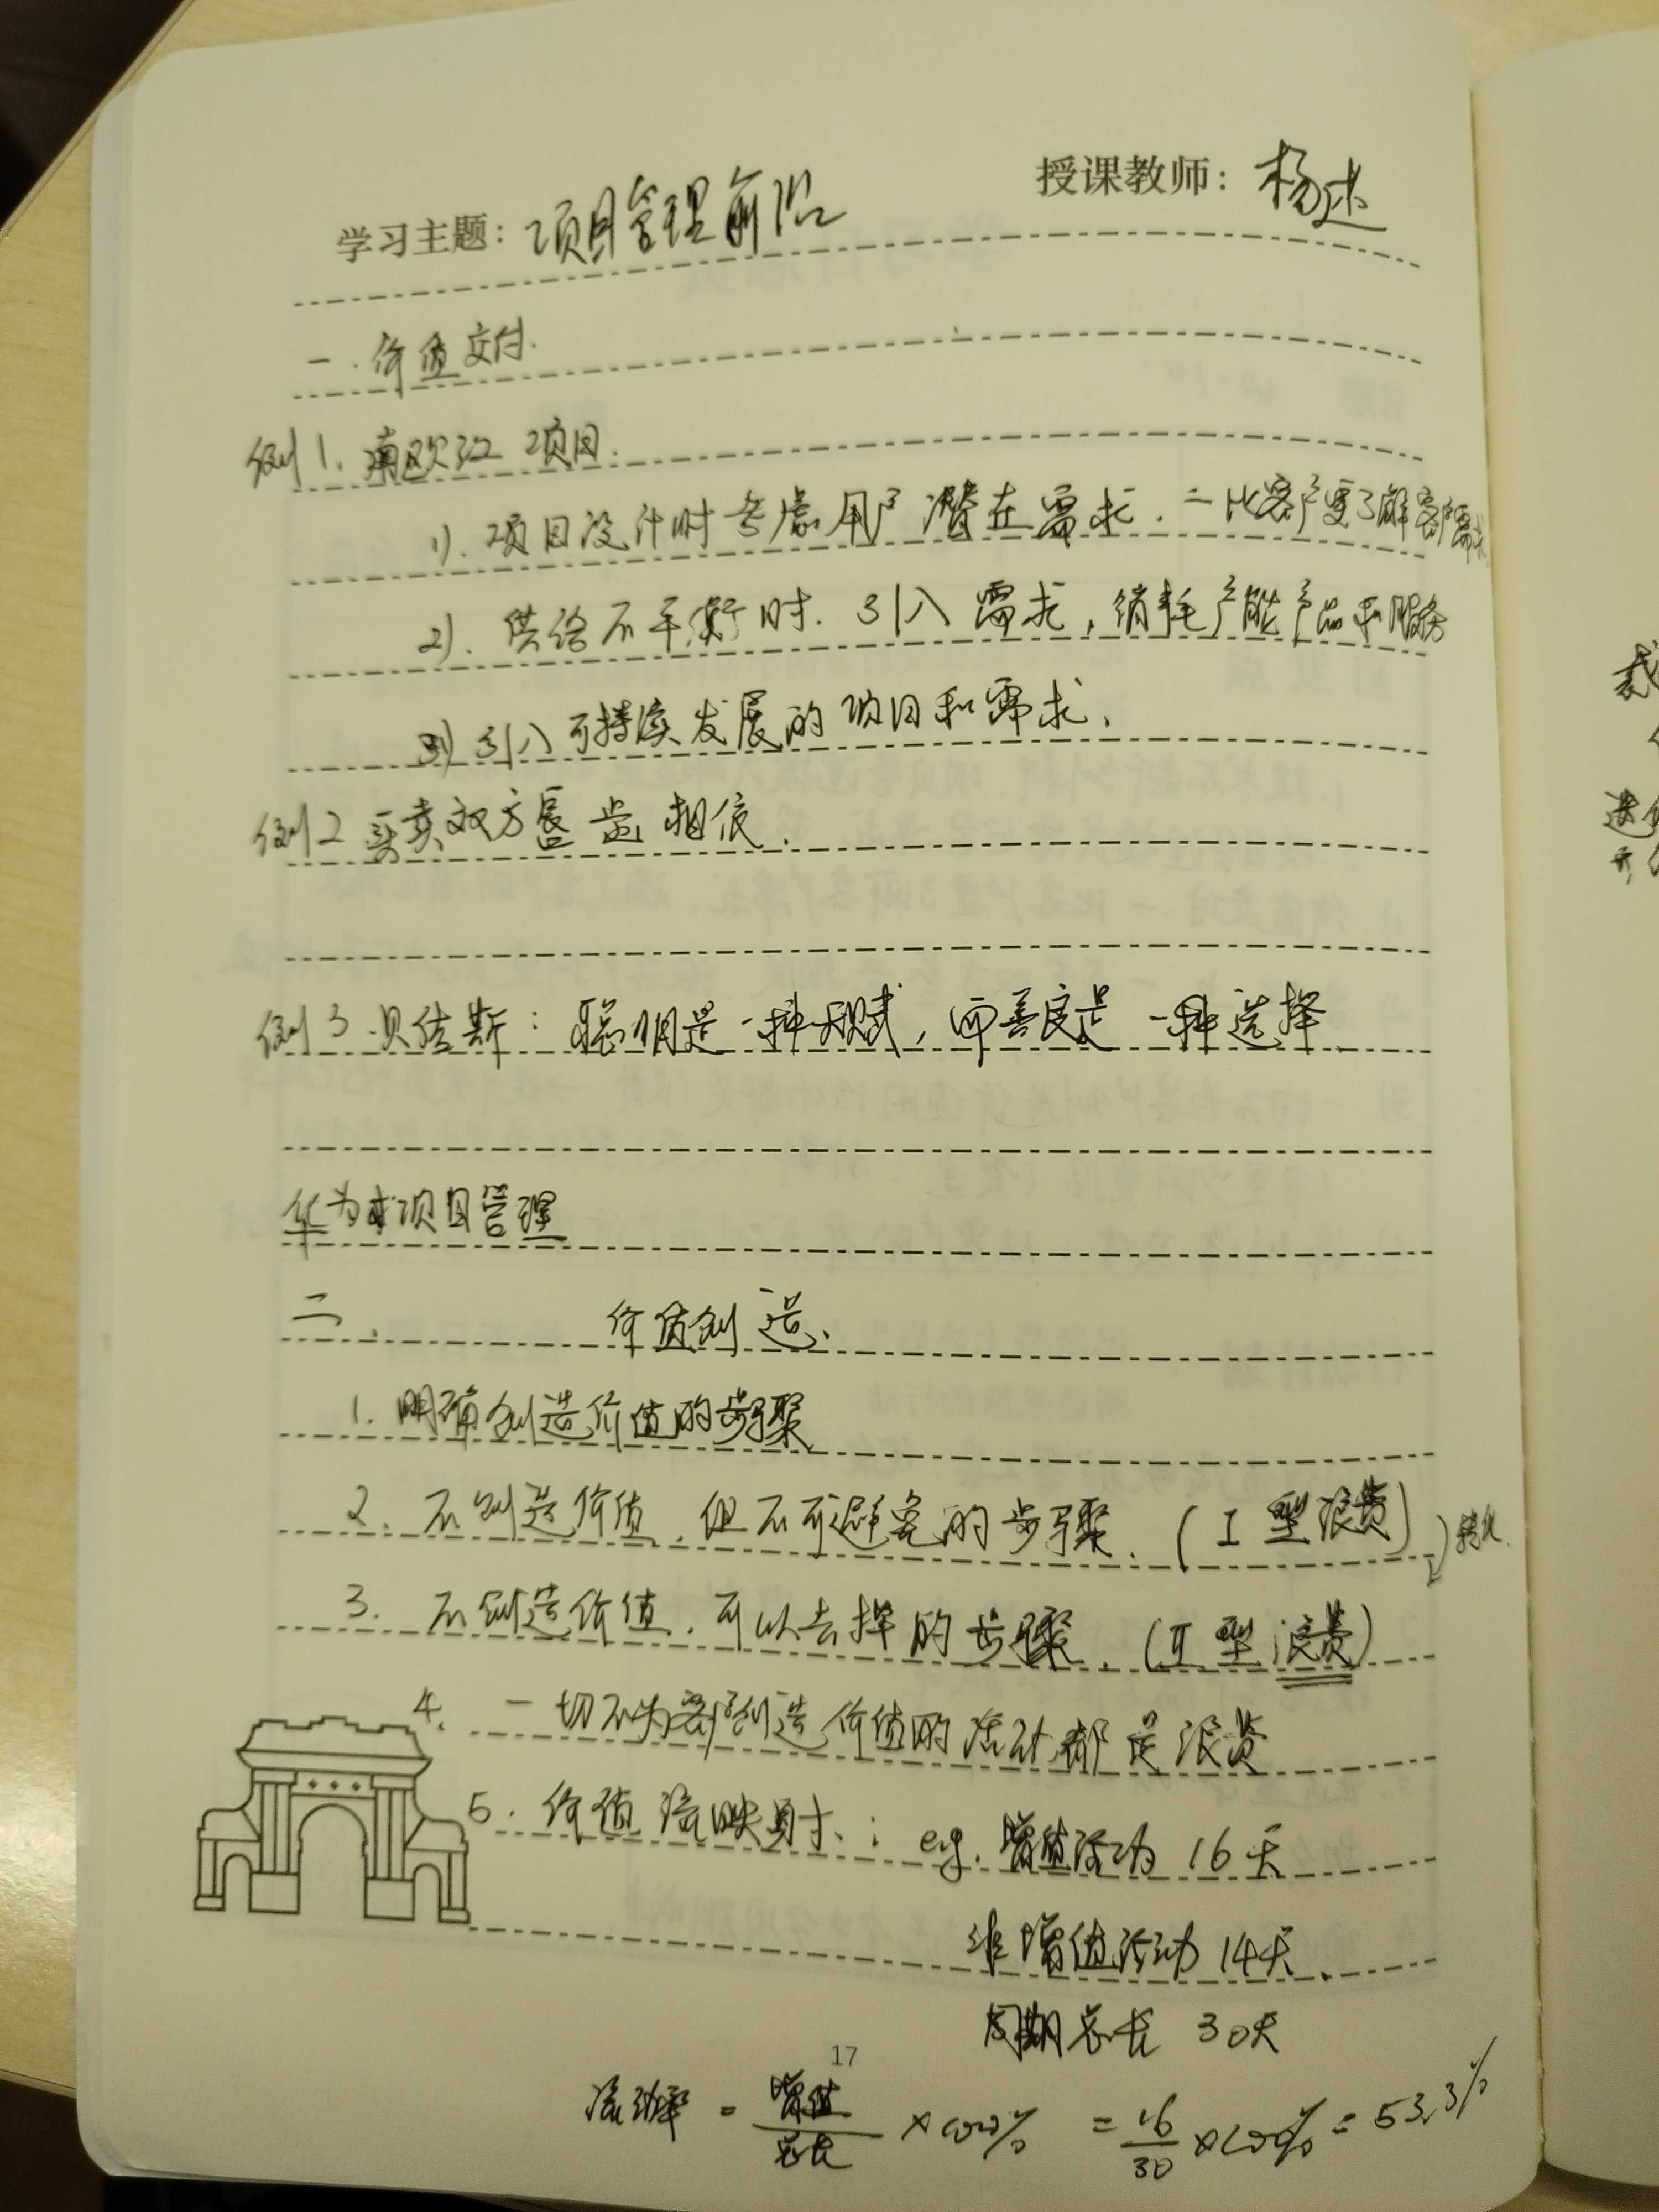 授课教师：杨述
学习主题：项目管理前沿
一．价值交付．
例1．南欧江 项目．
1)．项目设计时考虑用户潜在需求．一比客户更了解客户需求
2)．供给不平衡时．引入需求，销耗产能产品和服务
3) 引入可持续发展的项目和需求．
例2 买卖双方唇齿相依．
例3．贝佐斯：聪明是一种天赋，而善良是一种选择．
华为 项目管理
二． 价值创造．
1．明确创造价值的步骤
2．不创造价值．但不可避免的步骤．(I型浪费)
转化．
3．不创造价值．可以去掉的步骤．(II型浪费)
4．一切不为客户创造价值的活动都是浪费
5．价值流映射．：eg．增值活动 16天
非增值活动 14天．
周期总长 30天
17
流动率 = 增值/总长 ×100% = 16/30 ×100% = 53.3%
裁